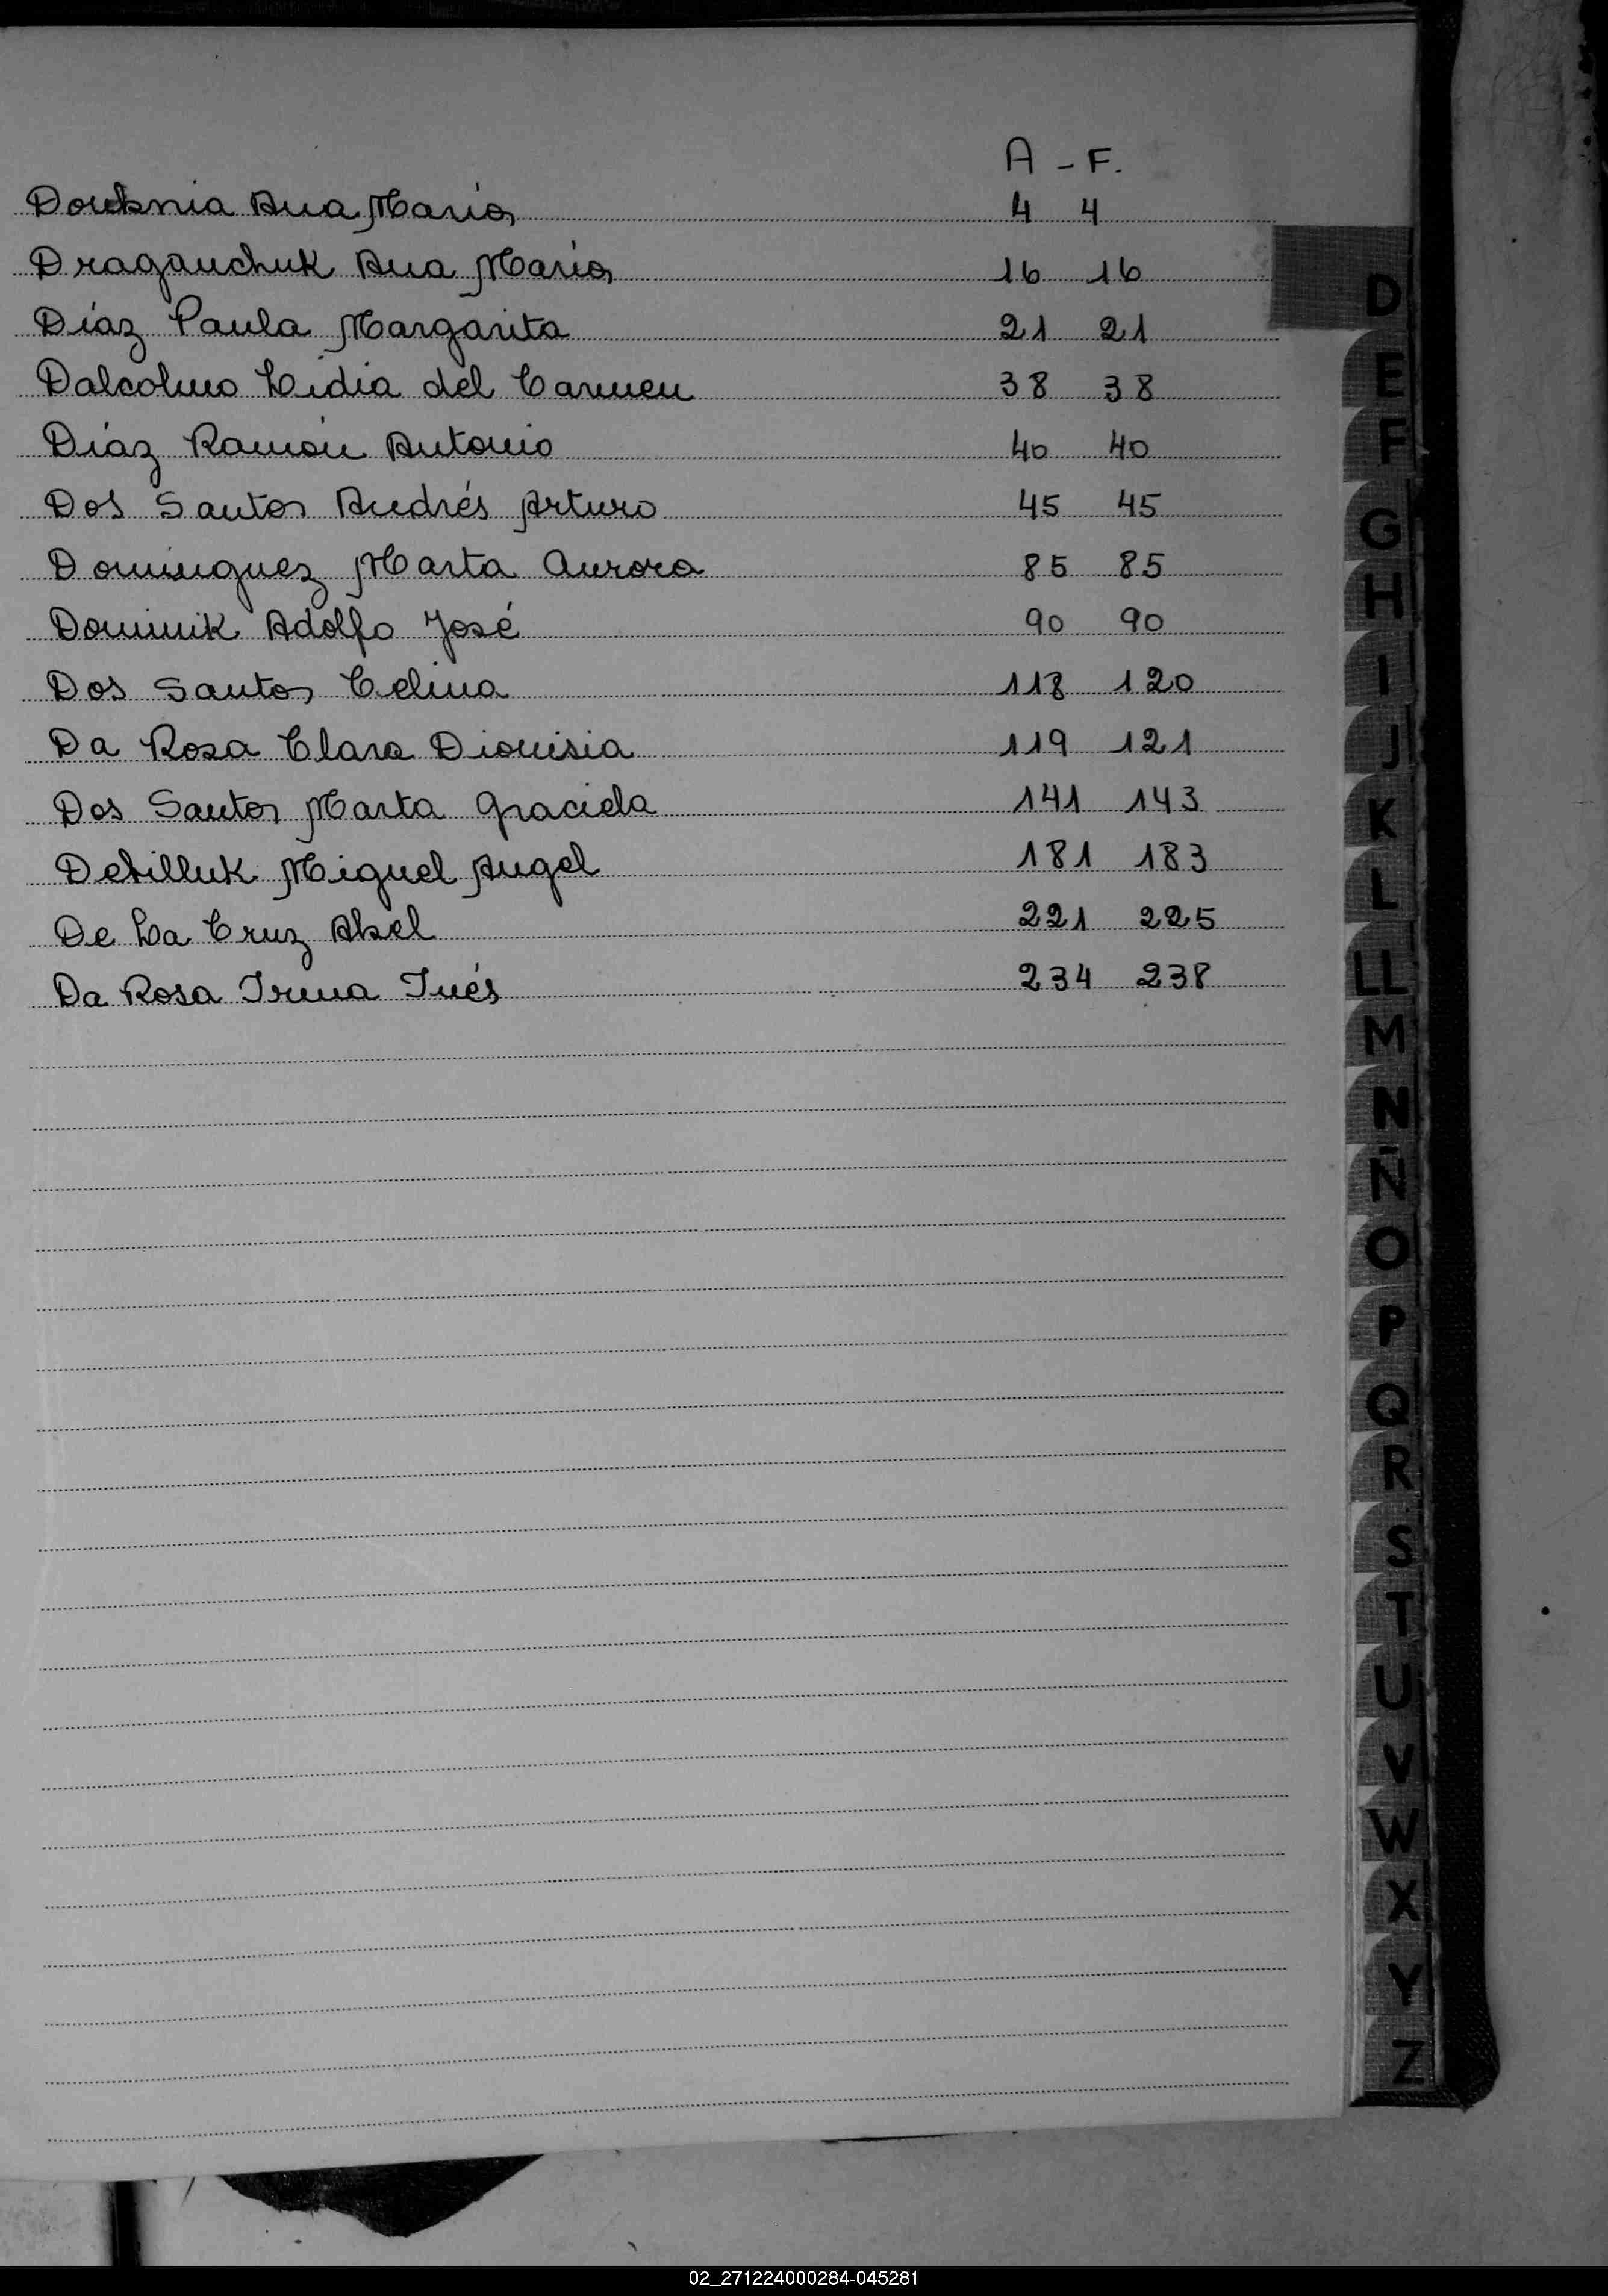 A - F.
Douknia Ana María 4 4
Draganchuk Ana María 16 16
Díaz Paula Margarita 21 21
Dalcolmo Lidia del Carmen 38 38
Díaz Ramón Antonio 40 40
Dos Santos Andrés Arturo 45 45
Dominguez Marta Aurora 85 85
Dominik Adolfo José 90 90
Dos Santos Celina 118 120
Da Rosa Clara Dionisia 119 121
Dos Santos Marta Graciela 141 143
Miguel Angel 181 183
De La Cruz Abel 221 225
Da Rosa Irma Inés 234 238
D
E
F
G
H
I
J
K
L
LL
M
N
Ñ
O
P
Q
R
S
T
U
V
W
X
Y
Z
02_271224000284-045281